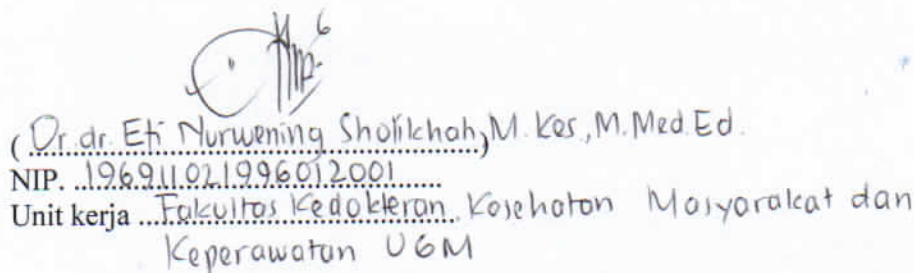 (Dr. dr. Eti Nurwening Sholikhah, M. Kes, M. Med. Ed.
NIP. 196911021996012001
Unit kerja Fakultas Kedokteran, Kesehatan Masyarakat dan
Keperawatan UGM